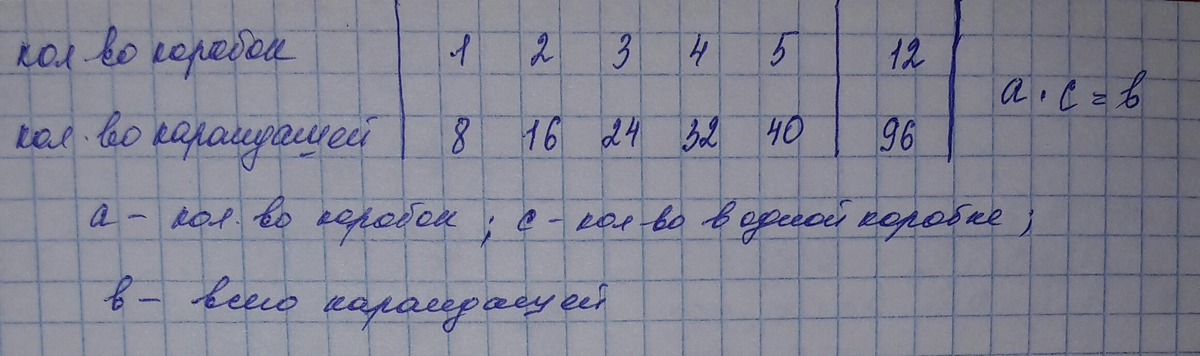 кол-во коробок 1 2 3 4 5 12
a · c = b
кол-во карандашей 8 16 24 32 40 96
a – кол-во коробок ; c – кол-во в одной коробке ;
b – всего карандашей